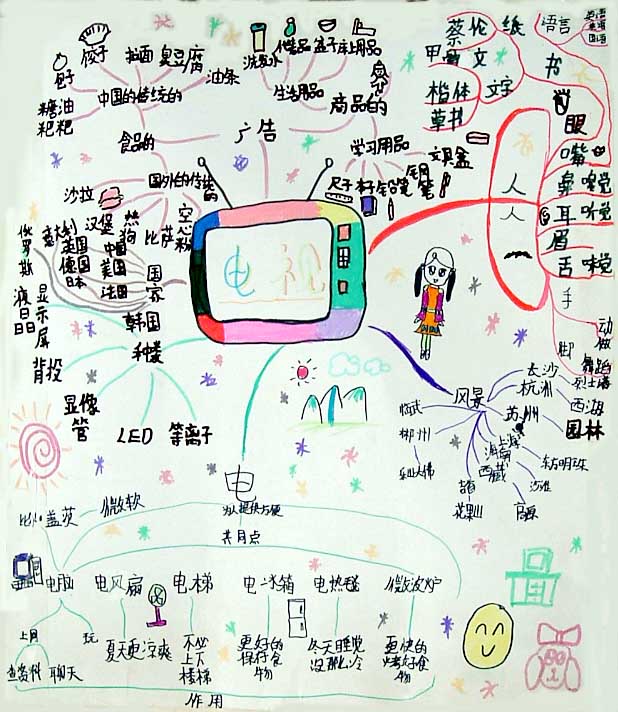 蔡伦 纸
语言
英语
国语
甲骨文
书
楷体
文字
草书
眼
嘴
鼻 嗅觉
耳 听觉
眉
舌 味觉
手
动做
脚
舞蹈
人
人
饺子
拉面
臭豆腐
油条
中国的传统的
糖油粑粑
食品的
广告
洗发水
化妆品
盒子
床上用品
生活用品
商品的
学习用品
文具盒
尺子
本子
铅笔
钢笔
国外的传统的
沙拉
汉堡
热狗
比萨
空心粉
俄罗斯
意大利
英国
德国
日本
中国
美国
法国
国家
韩国
液晶
显示屏
背投
种类
显像管
LED
等离子
电视
风景
长沙
烈士公
杭洲
西湖
苏州
园林
上海
东方明珠
海南
沙滩
西藏
高原
花果山
临武
郴州
乐山大佛
电
为人提供方便
共同点
比尔盖茨
微软
电脑
电风扇
电梯
电冰箱
电热毯
微波炉
上网
玩
查资料
聊天
夏天更凉爽
不必上下楼梯
更好的保存食物
冬天睡觉没那么冷
更快的烤好食物
作用